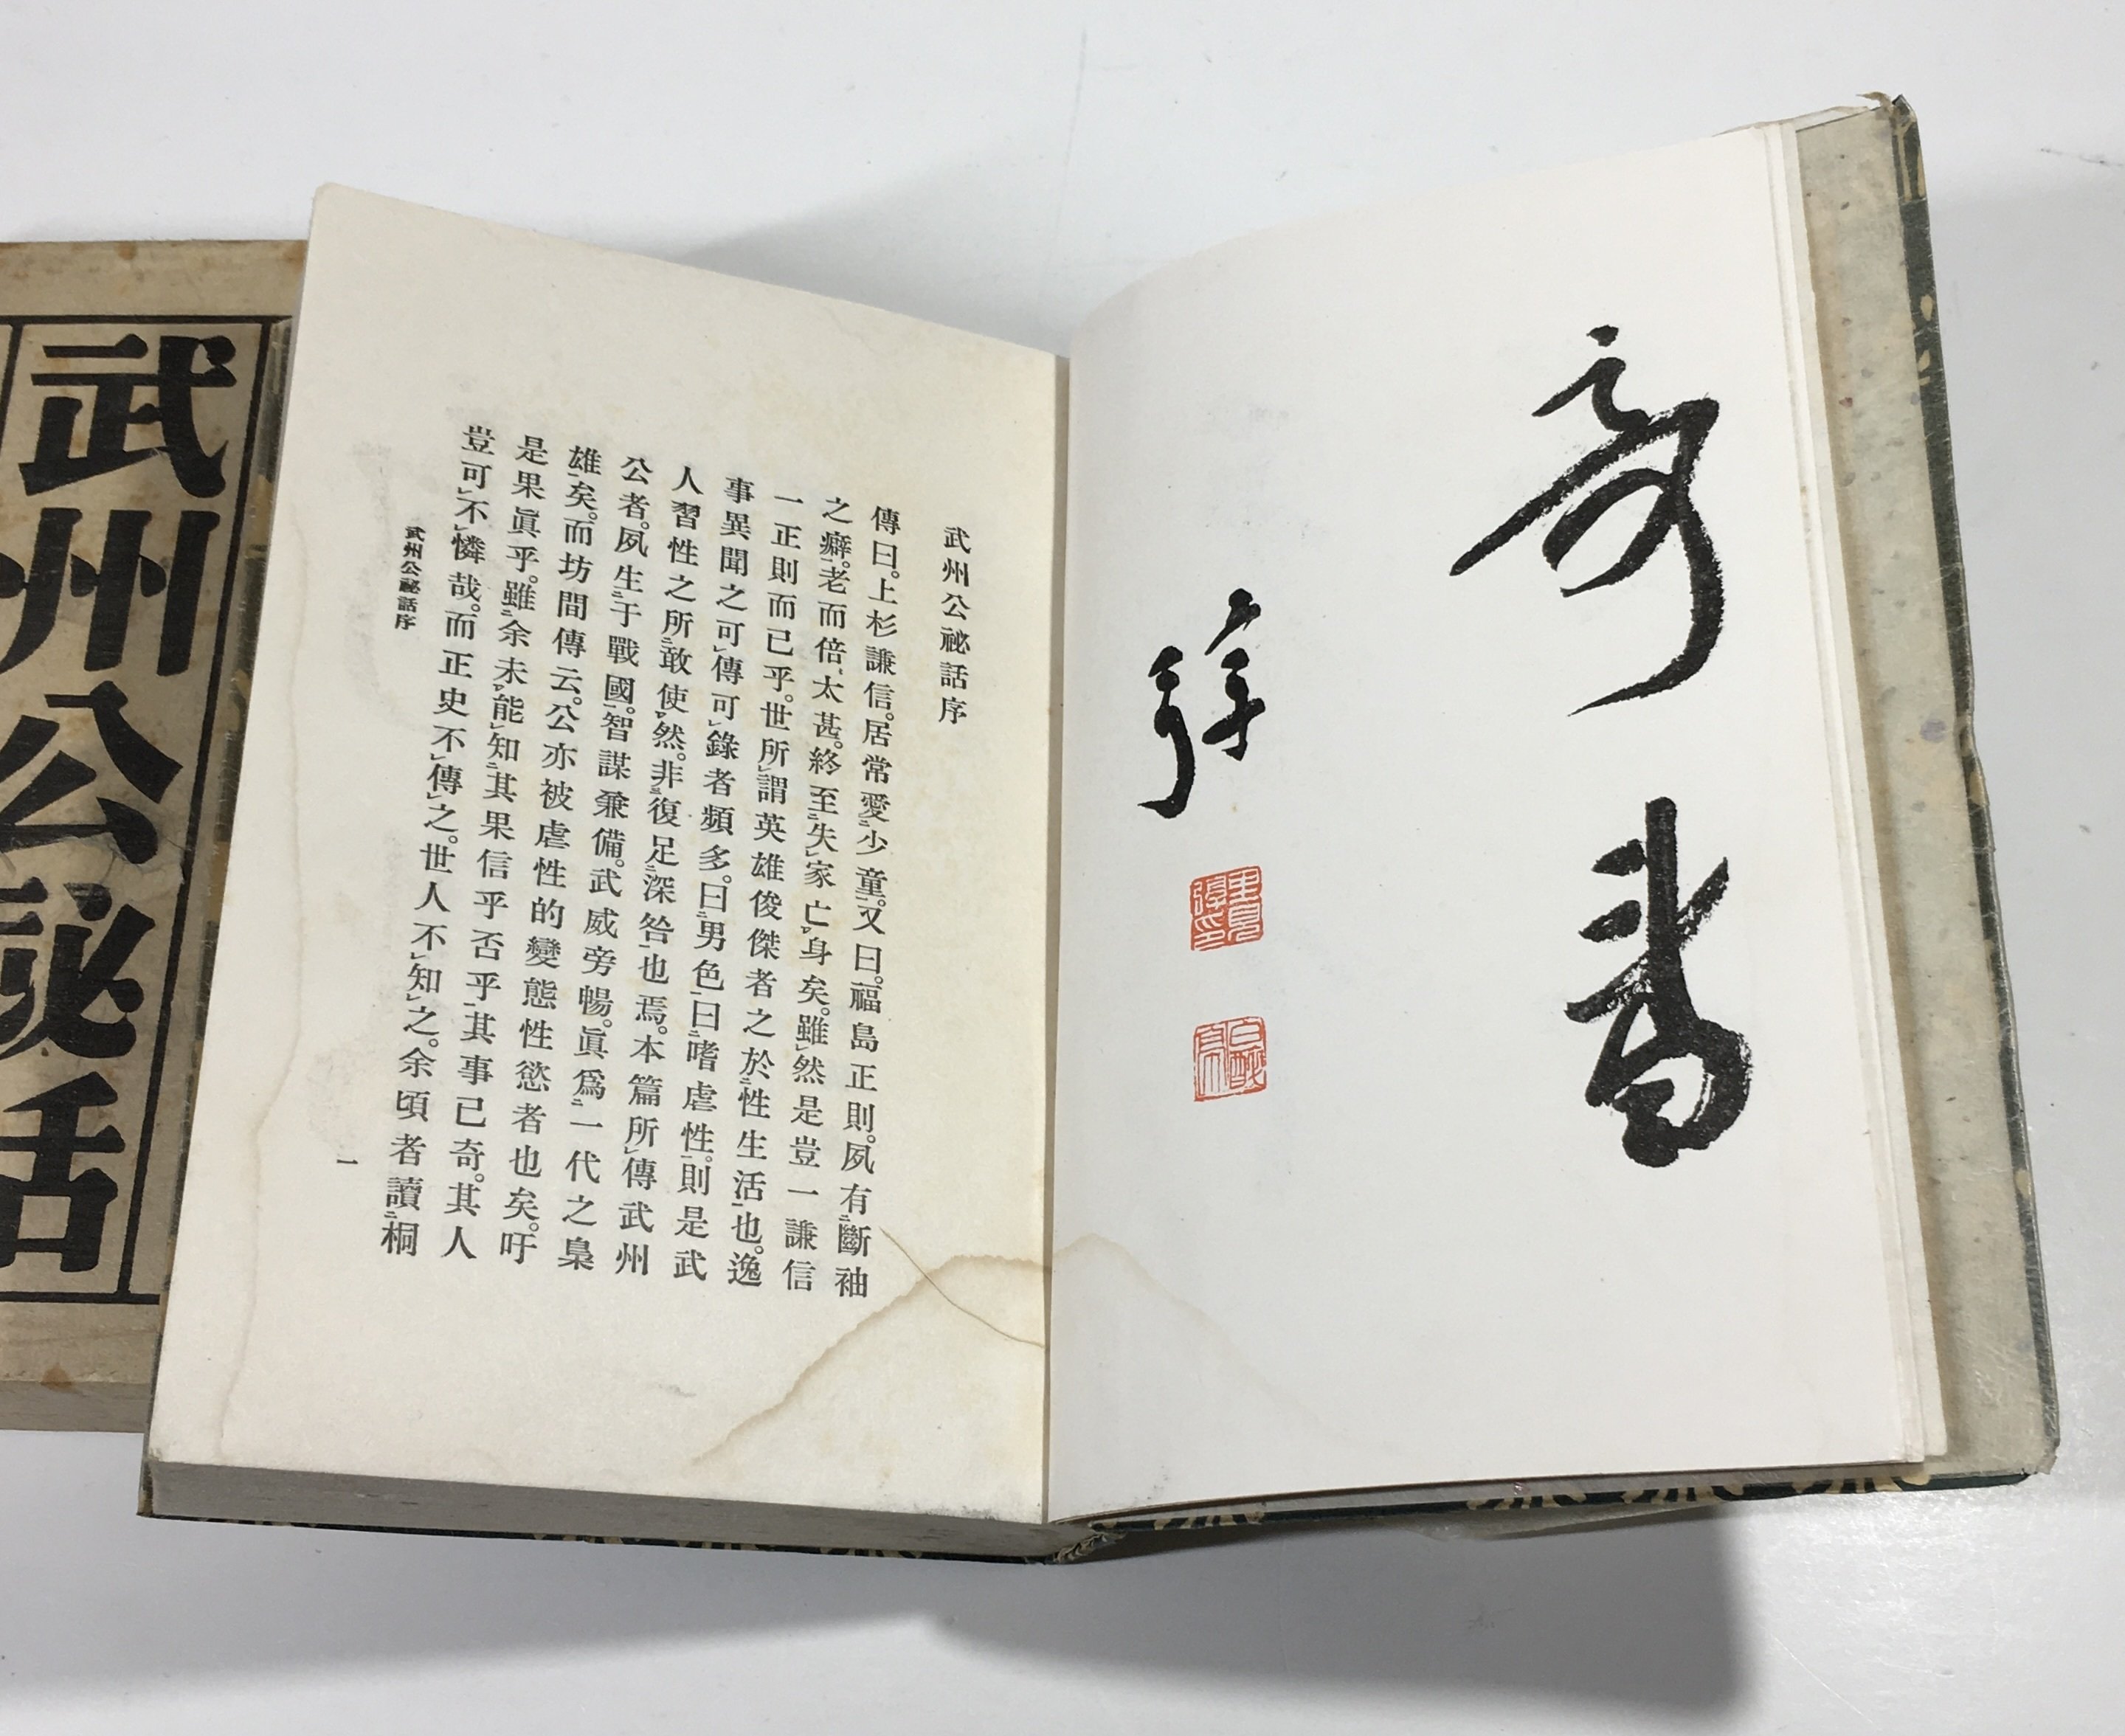 奇書
弴
里見弴印
武州公祕話序
傳曰。上杉謙信。居常愛少童。又曰。福島正則。夙有斷袖
之癖。老而倍太甚。終至失家亡身矣。雖然是豈一謙信
一正則而已乎。世所謂英雄俊傑者之於性生活也。逸
事異聞之可傳可錄者頻多。曰男色曰嗜虐性。則是武
人習性之所敢使然。非復足深咎也焉。本篇所傳武州
公者。夙生于戰國。智謀兼備。武威旁暢。眞爲一代之梟
雄矣。而坊間傳云。公亦被虐性的變態性慾者也矣。吁
是果眞乎。雖余未能知其果信乎否乎其事已奇。其人
豈可不憐哉。而正史不傳之。世人不知之。余頃者讀桐
武州公祕話序
一
武州公祕話